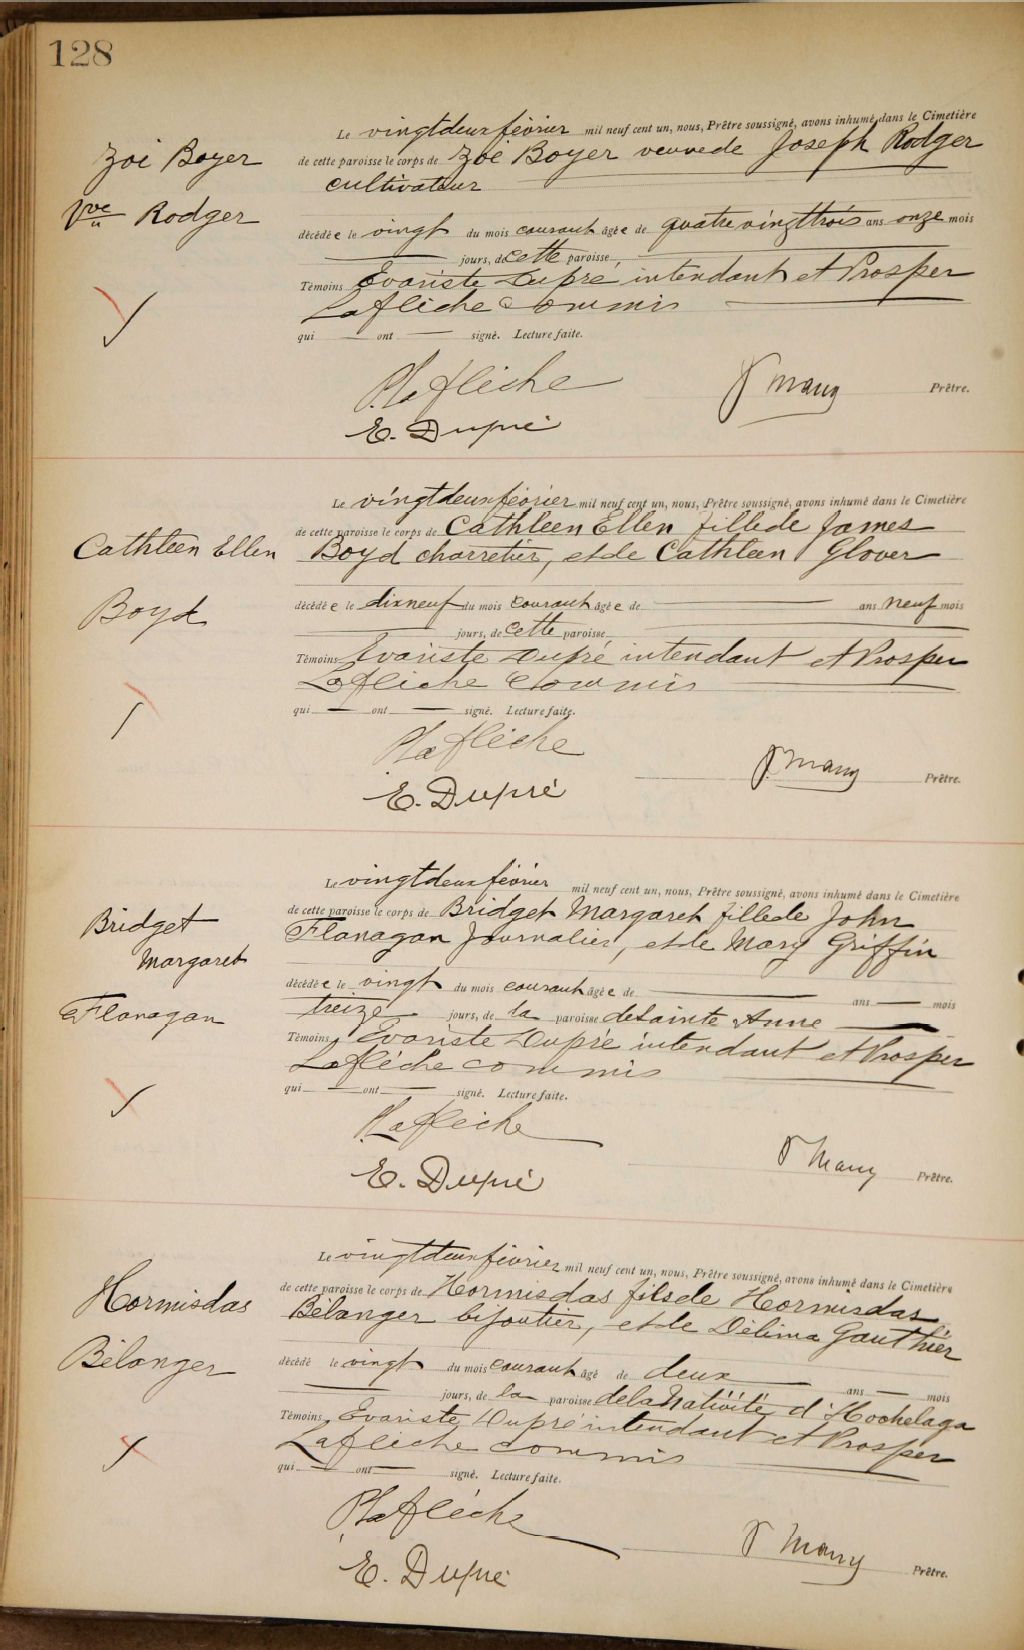 128
Le vingtdeux février mil neuf cent un, nous, Prêtre soussigné, avons inhumé dans le Cimetière
Zoé Boyer
de cette paroisse le corps de Zoé Boyer veuve de Joseph Rodger
cultivateur
Vve Rodger
décédée le vingt du mois courant âgée de quatrevingttrois ans onze mois
jours, de cette paroisse,
Témoins Evariste Dupré intendant et Prosper
Laflèche commis
qui ont signé. Lecture faite.
P. Laflèche
Prêtre.
E. Dupré
Le vingtdeux février mil neuf cent un, nous, Prêtre soussigné, avons inhumé dans le Cimetière
de cette paroisse le corps de Cathleen Ellen fille de James
Cathleen Ellen
Boyd charretier, et de Cathleen Glover
Boyd
décédée le dixneuf du mois courant âgée de ans neuf mois
jours, de cette paroisse
Témoins Evariste Dupré intendant et Prosper
Laflèche commis
qui ont signé. Lecture faite.
P. Laflèche
Prêtre.
E. Dupré
Le vingtdeux février mil neuf cent un, nous, Prêtre soussigné, avons inhumé dans le Cimetière
Bridget
de cette paroisse le corps de Bridget Margaret fille de John
Margaret
Flanagan journalier, et de Mary Griffin
décédée le vingt du mois courant âgée de ans mois
Flanagan
treize jours, de la paroisse de Sainte Anne
Témoins Evariste Dupré intendant et Prosper
Laflèche commis
qui ont signé. Lecture faite.
P. Laflèche
Prêtre.
E. Dupré
Le vingtdeux février mil neuf cent un, nous, Prêtre soussigné, avons inhumé dans le Cimetière
de cette paroisse le corps de Hormisdas fils de Hormisdas
Hormisdas
Bélanger bijoutier, et de Délima Gauthier
Bélanger
décédé le vingt du mois courant âgé de deux ans mois
jours, de la paroisse de la Nativité d'Hochelaga
Témoins Evariste Dupré intendant et Prosper
Laflèche commis
qui ont signé. Lecture faite.
P. Laflèche
Prêtre.
E. Dupré